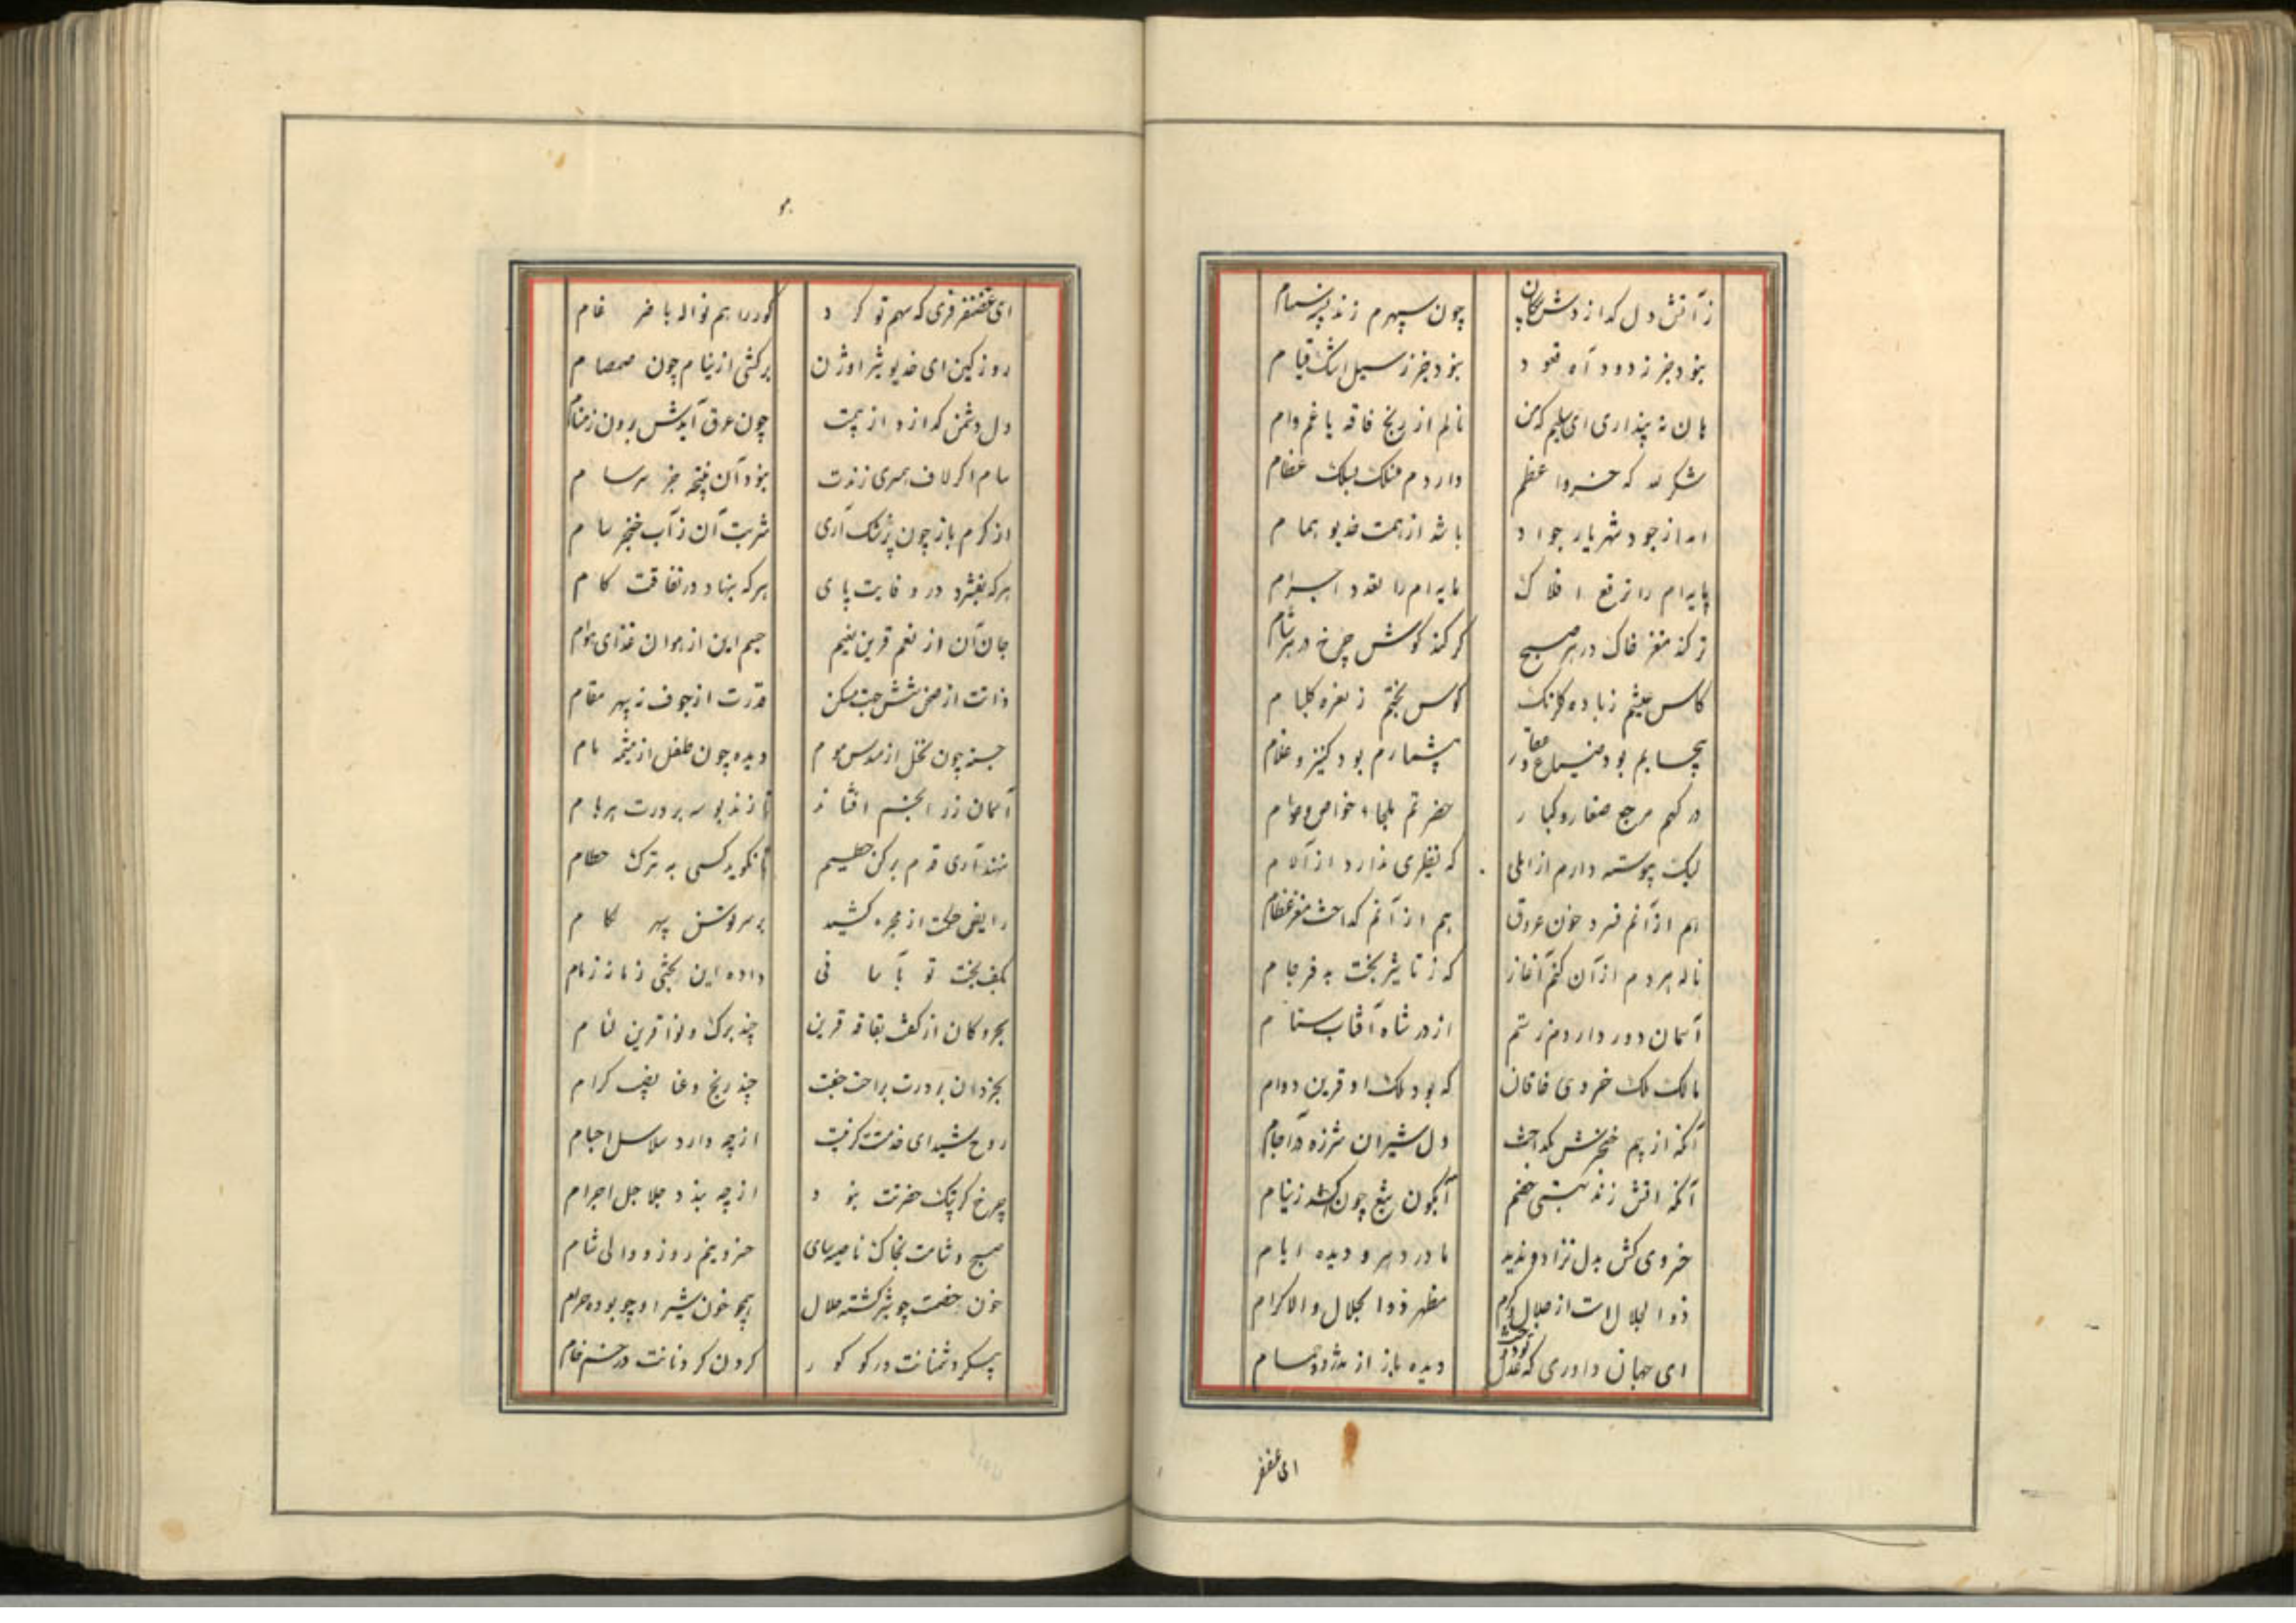 ز آتش دل گدازدش پیکان چون سپهرم زند
نبود جز ز دود آه قعود نبود جز ز سیل اشک قیام
هان نه پنداری ای سلیم که من نالم از رنج فاقه یا غم وام
شکر لله که خسروا عظم داردم منسلک بسلک عظام
ام از جود شهریار جواد باشد از همت خدیو همام
پایه‌ام را ترفع افلاک مایه‌ام را نقود اجرام
تر کند مغز خاک در هر صبح کر کند گوش چرخ در هر شام
کاس عیشم ز باده گلرنگ کوس بختم ز نعره گلبام
بیحسابم بود ضیاع و عقار بیشمارم بود کنیز و غلام
درگهم مرجع صغار و کبار حضرتم ملجاء خواص و عوام
لیک پیوسته دارم از املی که نظیری ندارد از آلام
هم از آنم فسرد خون عروق هم از آنم گداخت مغز عظام
ناله هر دم از آن کنم آغاز که ز تاثیر بخت بد فرجام
آسمان دور داردم ز ستم از در شاه آفتاب ستام
مالک ملک خسروی خاقان که بود ملک او قرین دوام
آنکه از بیم خنجرش بگداخت دل شیران شرزه در آجام
آنکه آتش زند به هستی خصم آبگون تیغ چون کشد ز نیام
خسروی کش بدل نزاد و ندید مادر دهر و دیده ایام
ذوالجلال است از جلال و کرم مظهر ذوالجلال و الاکرام
ای جهان داوری که عدل دیده باز از
ای غضنفر
ای غضنفر فری که سهم تو کرد گور را هم نواله با ضرغام
روز کین ای خدیو شیر اوژن برکشی از نیام چون صمصام
دل دشمن گدازد از بیمت چون عرق آیدش برون ز مسام
سام اگر لاف همسری زندت نبود آن نتیجه جز سرسام
از کرم باز چون پزشک آری شربت آن ز آب خنجر سام
هرکه بفشرد در وفایت پای هرکه بنهاد در نفاقت گام
جان آن از نعم قرین نعیم جسم این از هوان غذای هوام
ذاتت از صنع شش جهت مسکن قدرت از جوف نه سپهر مقام
جسته چون نخل از موم دیده چون طفل از مشیمه مام
آسمان زر انجم افشاند تا زند بوسه بر درت بهرام
ننهد آری قدم برکن حطیم تا نگوید کسی به ترک حطام
رایض حکمت از مجره کشید بر سر توسن سپهر لگام
بکف بخت تو بآسانی داده این بختی زمانه زمام
بحر و کان از کفت بفاقه قرین چند برگ و نوا قرین لئام
بخردان بر درت براحت جفت چند رنج و عنا نصیب کرام
روح شیدای خدمتت گر نیست از چه دارد سلاسل اجسام
چرخ گر پیک حضرتت نبود از چه بندد جلاجل اجرام
صبح و شامت بخاک ناصیه سای خسرو نیمروز و والی شام
خون خصمت چو شیر گشته حلال همچو خون شیر او چو بوده حرام
پیکر دشمنانت در گور گردن گردنانت در خم خام